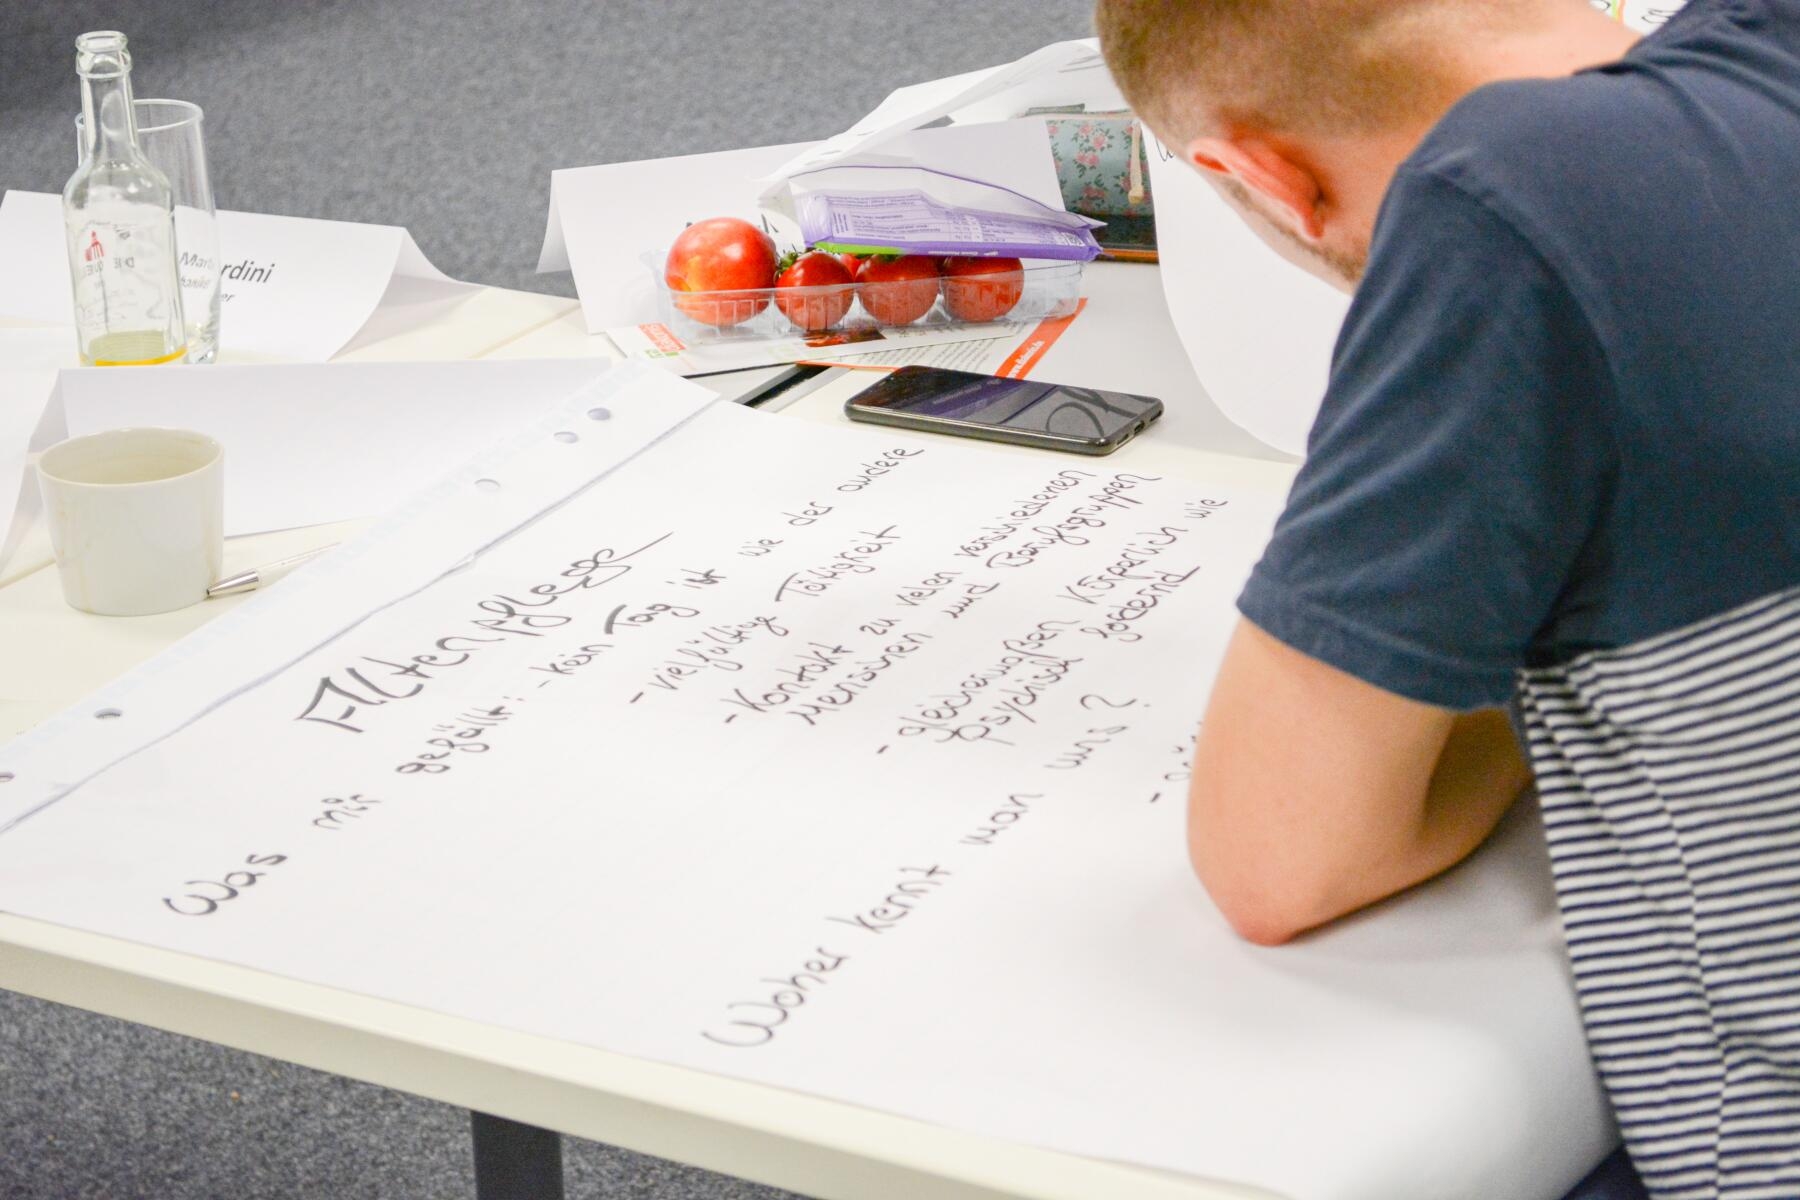 Altenpflege
Was mir gefällt: - Kein Tag ist wie der andere
- vielfältige Tätigkeit
- Kontakt zu vielen verschiedenen
Menschen und Berufsgruppen
- gleichermaßen Körperlich wie
psychisch fordernd
Woher kennt man uns?
-
rdini
www.